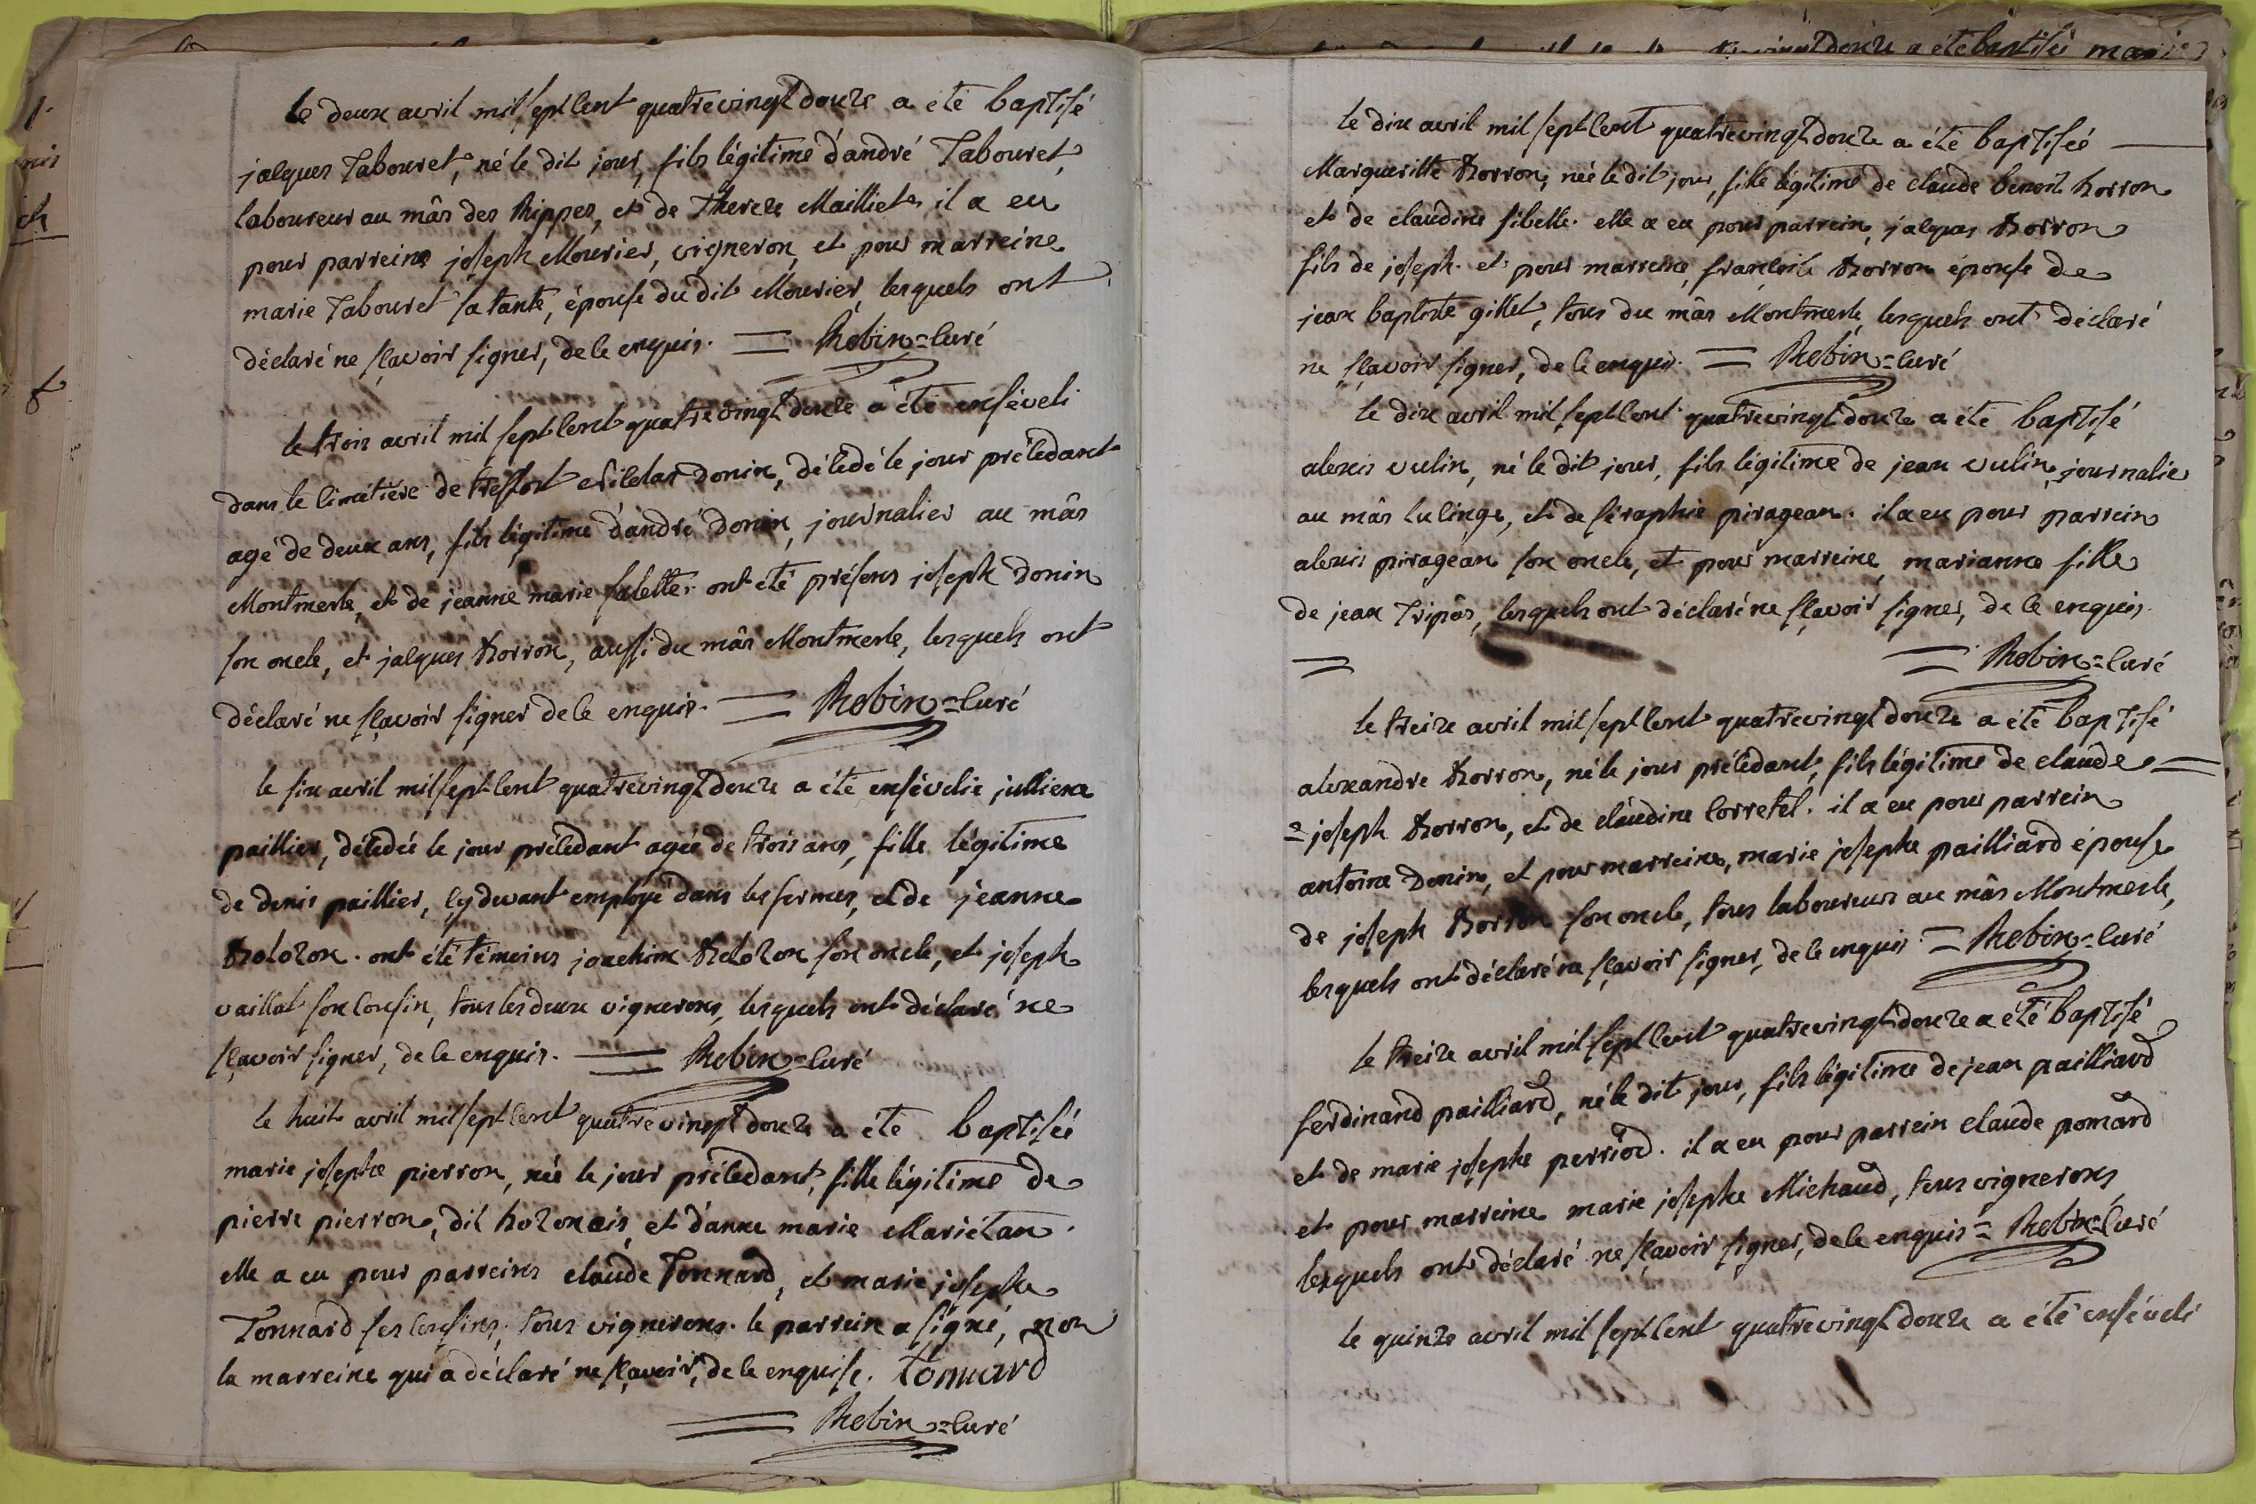 le deux avril mil sept cent quatrevingt douze a été baptisé
jacques Tabouret, né le dit jour, fils légitime d'andré Tabouret
laboureur au mâs des Rippes, et de Therese Mailliet. il a eu
pour parreine joseph Mourier, vigneron, et pour marreine
marie Tabouret sa tante, épouse du dit Mourier, lesquels ont
déclaré ne sçavoir signer, de ce enquis. = Robin = Curé
le trois avril mil sept cent quatrevingt douze a été enséveli
dans le cimétiére de treffort Donin, décédé le jour précédant
agé de deux ans, fils légitime d'andré Donin, journalier au mâs
Montmerle, et de jeanne marie falette. ont été présens joseph Donin
son oncle, et jacques Borron, aussi du mâs Montmerle, lesquels ont
déclaré ne sçavoir signer de ce enquis. = Robin = Curé
le six avril mil sept cent quatrevingt douze a été ensévelie jullienne
paillier, décédée le jour précédant agée de trois ans, fille légitime
de denis paillier, cy devant employé dans les fermes, et de jeanne
ont été témoins joachim son oncle, et joseph
vaillat son cousin, tous les deux vignerons, lesquels ont déclaré ne
sçavoir signer, de ce enquis. = Robin = Curé
le huit avril mil sept cent quatrevingt douze a été baptisée
marie josephe pierron, née le jour précédant, fille légitime de
pierre pierron, dit et d'anne marie Mariétan.
elle a eu pour parreins claude Tonnard, et marie josephe
Tonnard ses cousins, tous vignerons. le parrein a signé, non
la marreine qui a déclaré ne sçavoir, de ce enquise. tonnard
= Robin = Curé
a été baptisée marie
le dix avril mil sept cent quatrevingt douze a été baptisée
Margueritte Borron, née le dit jour, fille légitime de claude benoit borron
et de claudine sibelle. elle a eu pour parrein, jacques Borron
fils de joseph. et pour marreine, françoise Borron épouse de
jean baptiste gillet, tous du mâs Montmerle, lesquels ont déclaré
ne sçavoir signer, de ce enquis. = Robin = Curé
le dix avril mil sept cent quatrevingt douze a été baptisé
alexis vulin, né le dit jour, fils légitime de jean vulin, journalier
au mâs Lulinge, et de séraphie pirageau. il a eu pour parrein
alexis pirageau son oncle, et pour marreine, marianne fille
de jean Tripôs, lesquels ont déclaré ne sçavoir signer, de ce enquis.
= = Robin = Curé
le treize avril mil sept cent quatrevingt douze a été baptisé
alexandre Borron, né le jour précédant, fils légitime de claude =
= joseph Borron, et de claudine Corretel. il a eu pour parrein
antoine Donin, et pour marreine, marie josephe pailliard épouse
de joseph Borron son oncle, tous laboureurs au mâs Montmerle,
lesquels ont déclaré ne sçavoir signer, de ce enquis = Robin = Curé
le treize avril mil sept cent quatrevingt douze a été baptisé
ferdinand pailliard, né le dit jour, fils légitime de jean pailliard
et de marie josephe perriod. il a eu pour parrein claude pomard
et pour marreine marie josephe Michaud, tous vignerons
lesquels ont déclaré ne sçavoir signer, de ce enquis = Robin = Curé
le quinze avril mil sept cent quatrevingt douze a été enséveli